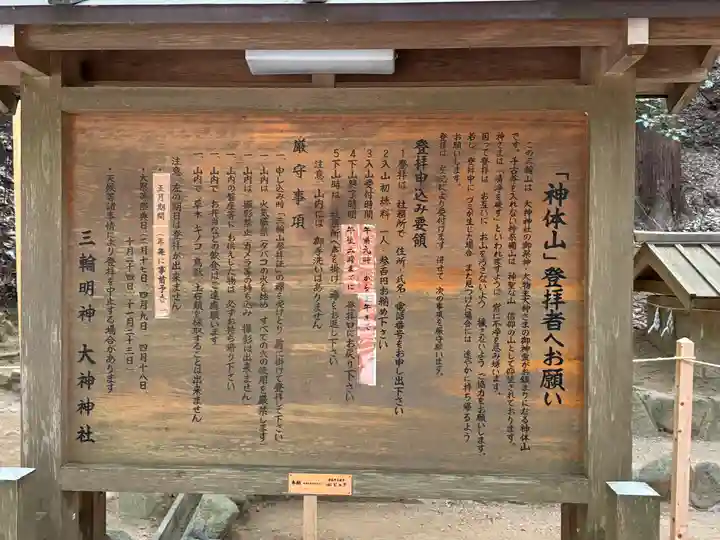 「神体山」登拝者へお願い
この三輪山は 大神神社の御祭神・大物主大神さまの御神霊がお鎮まりになる神体山
です。千古斧を入れない神奈備山は 神聖な山 信仰の山として仰拝されております。
神さまは「清浄を尊ず」といわれますように 常に不浄を忌み嫌います。
因って登拝は お互いに お山を汚さないよう 穢さないよう ご協力をお願いします。
若し 登拝中に ゴミが生じた場合 また見つけた場合には 速やかに持ち帰るよう
お願いします。
登拝は 左記により受付けます 併せて 次の事項を厳守願います。
登拝申込み要領
1 登拝は 社務所で 住所・氏名・電話番号をお申し出下さい
2 入山初穂料 一人 参百円お納め下さい
3 入山受付時間 午前九時 から
4 下山終了時間 午後三時までに 登拝口にお戻り下さい
5 下山時は 社務所へお掛け襷をお返し下さい
注意 山内には 御手洗いはありません
厳守事項
一、申し込み時「三輪山参拝証」の襷を受けとり 肩に掛けて登拝して下さい
一、山内は 火気厳禁(タバコの火も始め すべての火の使用を厳禁します)
一、山内は 撮影禁止 カメラ等の持ち込み 撮影は出来ません
一、山内の磐座等に お供えした物は 必ずお持ち帰り下さい
一、山内で お弁当などの飲食はご遠慮願います
一、山内で 草木・キノコ・鳥獣・土石類を採取することは出来ません
注意 左の期日は登拝が出来ません
正月期間
・大祭等祭典日(二月十七日、四月九日、四月十八日、
十月二十四日、十一月二十三日)
・天候等諸事情により登拝を中止する場合があります
三輪明神 大神神社